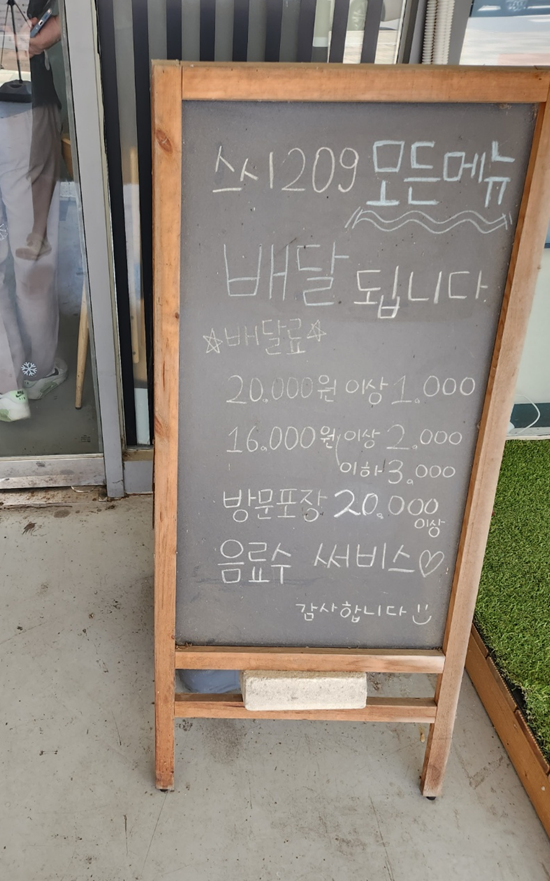 스시209 모든메뉴
배달 됩니다
☆배달료☆
20.000원 이상 1.000
16.000원(이상 2.000
이하 3.000
방문포장 20.000
이상
음료수 써비스♡
감사합니다